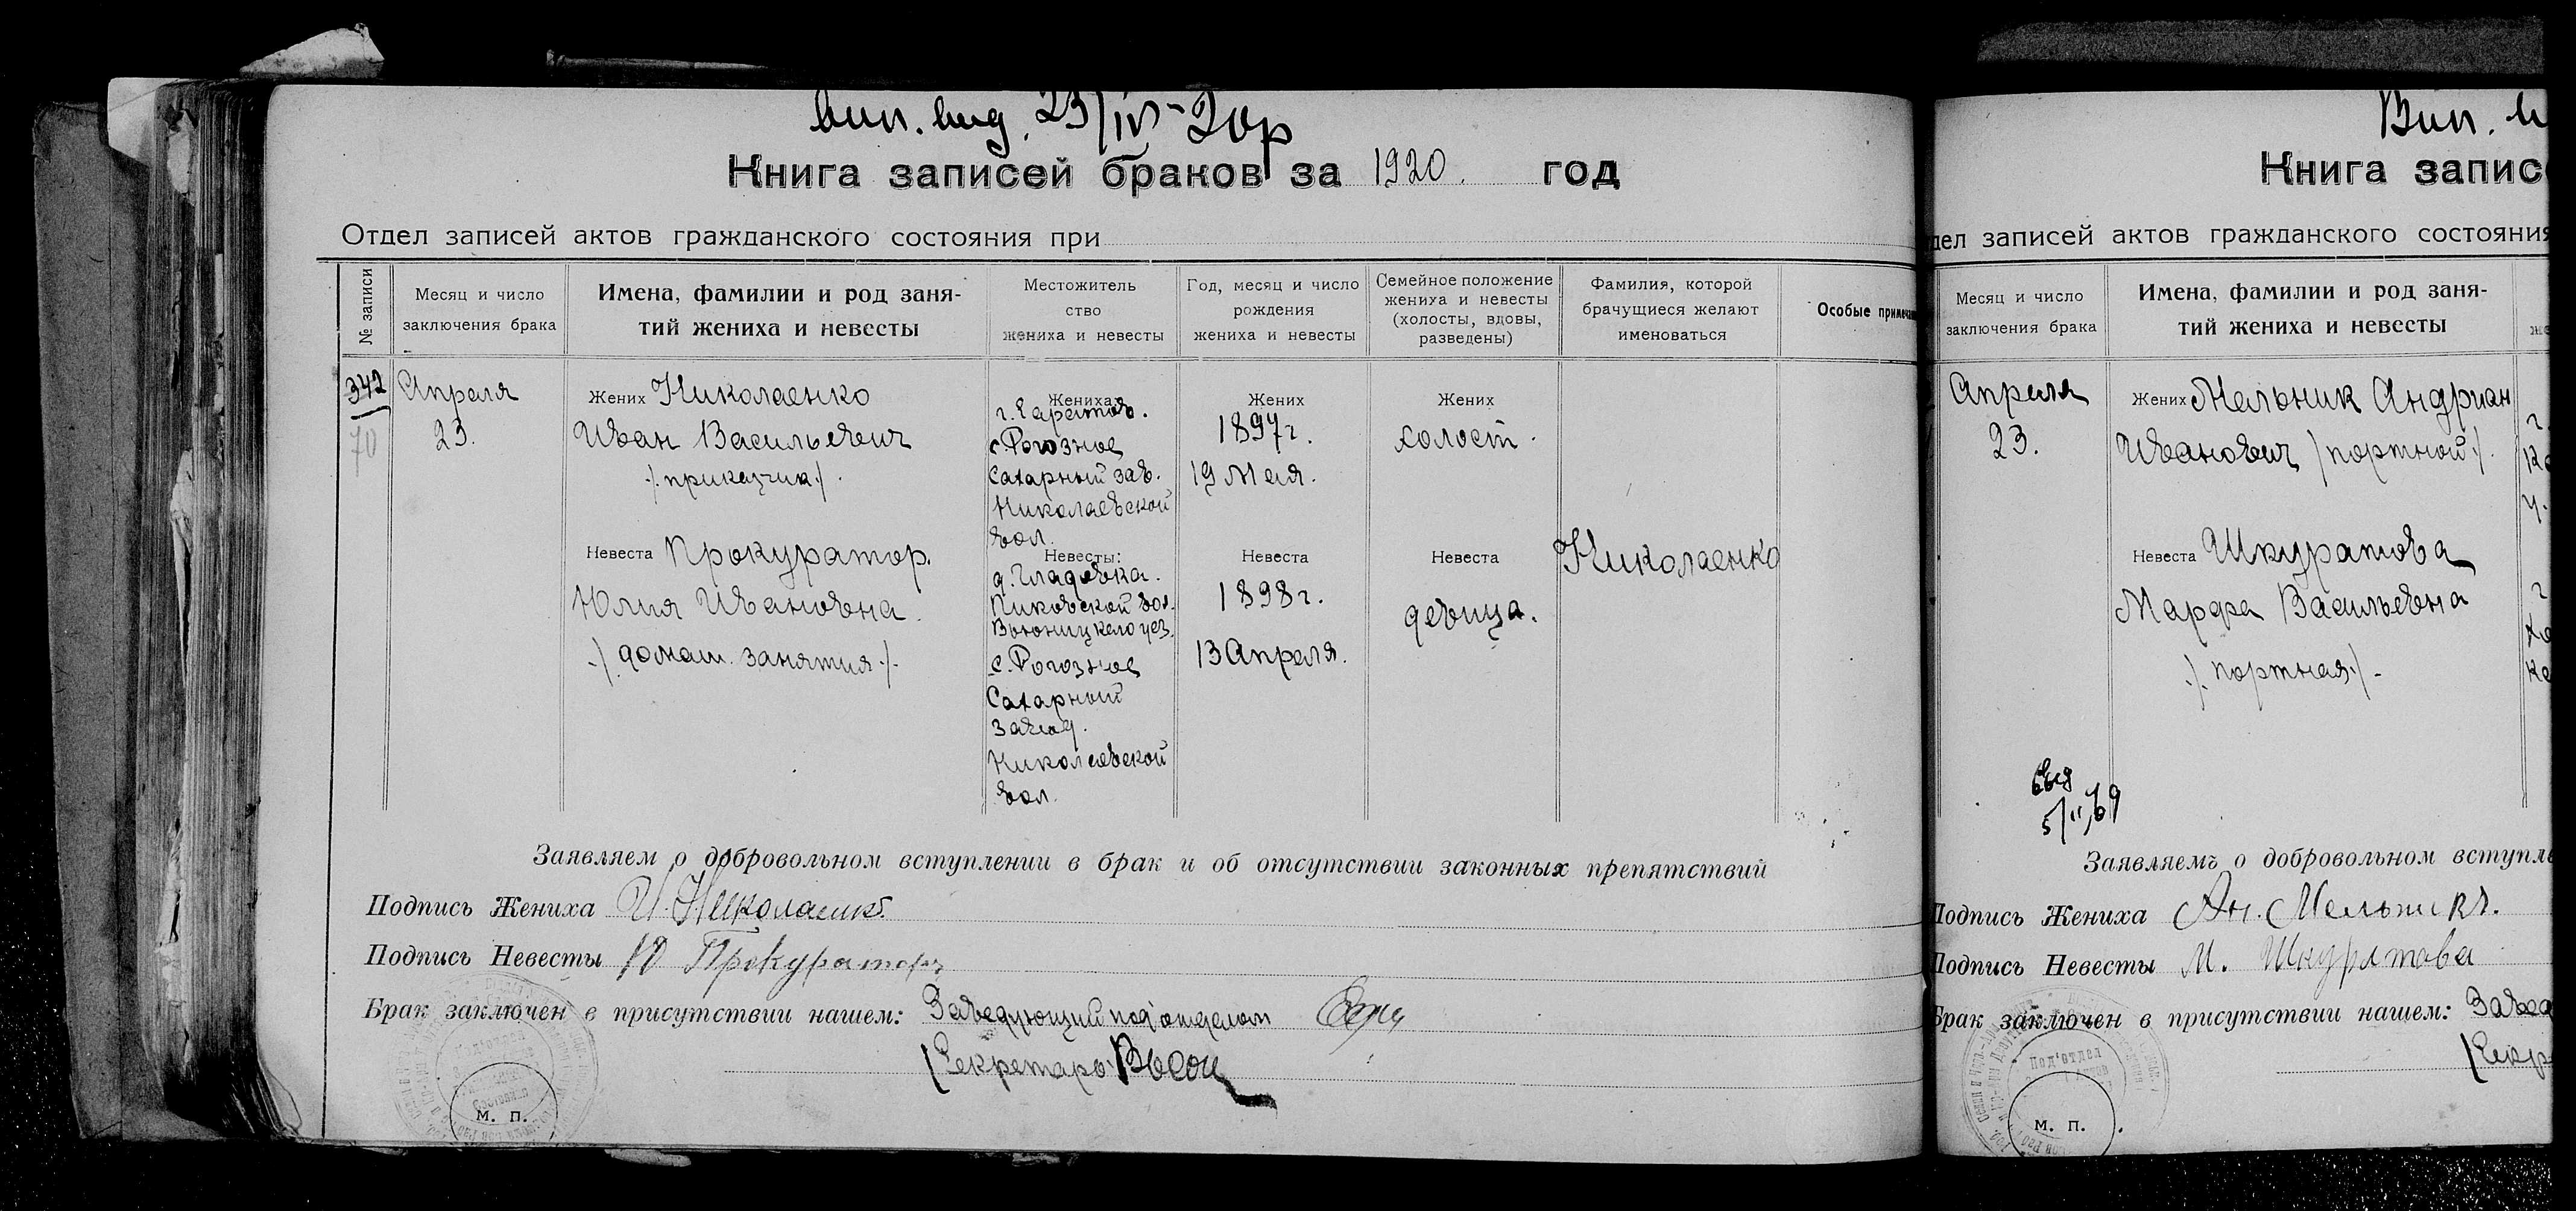 вип. вид. 23/IV-20р
Книга записей браков за 1920. год
Отдел записей актов гражданского состояния при
№ записи
Месяц и число
заключения брака
Имена, фамилии и род заня-
тий жениха и невесты
Местожитель
ство
жениха и невесты
Год, месяц и число
рождения
жениха и невесты
Семейное положение
жениха и невесты
(холосты, вдовы,
разведены)
Фамилия, которой
брачущиеся желают
именоваться
Особые примеча
342
70
Апреля
23.
Жених Николаенко
Иван Васильевич
/.приказчик./.
Невеста Прокуратор.
Юлия Ивановна.
./.домаш. занятия./.
Жениха
г. Саратов.
с. Рогозное
Сахарный зав.
Николаевской
вол.
Невесты:
д. Гладовка.
Пиковской вол.
Винницкаго уез.
с. Рогозное
Сахарный
завод.
Николаевской
вол.
Жених
1897г.
19 Мая.
Невеста
1898г.
13 Апреля.
Жених
холост.
Невеста
девица.
Николаенко
Заявляем о добровольном вступлении в брак и об отсутствии законных препятствий
Подпись Жениха И. Николаенко
Подпись Невесты Ю Прокуратор
Брак заключен в присутствии нашем: Заведующий под'отделом
Секретарь
м. п.
Вип. в
Книга записе
дел записей актов гражданского состояния
Месяц и число
заключения брака
Имена, фамилии и род заня-
тий жениха и невесты
же
Апреля
23.
Жених Мельник Андриан
Иванович /портной./.
Невеста Шкуратова
Марфа Васильевна
./.портная./.
5/II,69
Заявляемъ о добровольном вступле
Подпись Жениха Ан. Мельникъ.
Подпись Невесты М. Шкуратова
Брак заключен в присутствии нашем: Завед
Секр
Под'отдел
м. п.